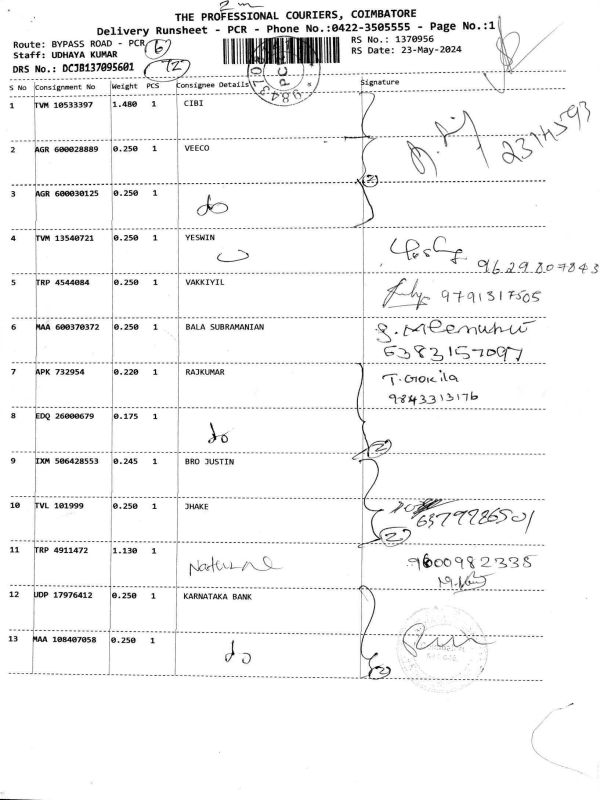 THE PROFESSIONAL COURIERS, COIMBATORE
Delivery Runsheet - PCR - Phone No.:0422-3505555 - Page No.:1
Route: BYPASS ROAD - PCR 6
RS No.: 1370956
Staff: UDHAYA KUMAR
RS Date: 23-May-2024
DRS No.: DCJB137095601 72
S No Consignment No Weight PCS Consignee Details Signature
1 TVM 10533397 1.480 1 CIBI
2 AGR 600028889 0.250 1 VEECO
2
3 AGR 600030125 0.250 1
do
4 TVM 13540721 0.250 1 YESWIN
9629807843
5 TRP 4544084 0.250 1 VAKKIYIL
9791317505
6 MAA 600370372 0.250 1 BALA SUBRAMANIAN
6383157097
7 APK 732954 0.220 1 RAJKUMAR T. Gokila
9843313176
8 EDQ 26000679 0.175 1
do 2
9 IXM 506428553 0.245 1 BRO JUSTIN
10 TVL 101999 0.250 1 JHAKE
2
11 TRP 4911472 1.130 1
9600982335
12 UDP 17976412 0.250 1 KARNATAKA BANK
13 MAA 108407058 0.250 1
do 2